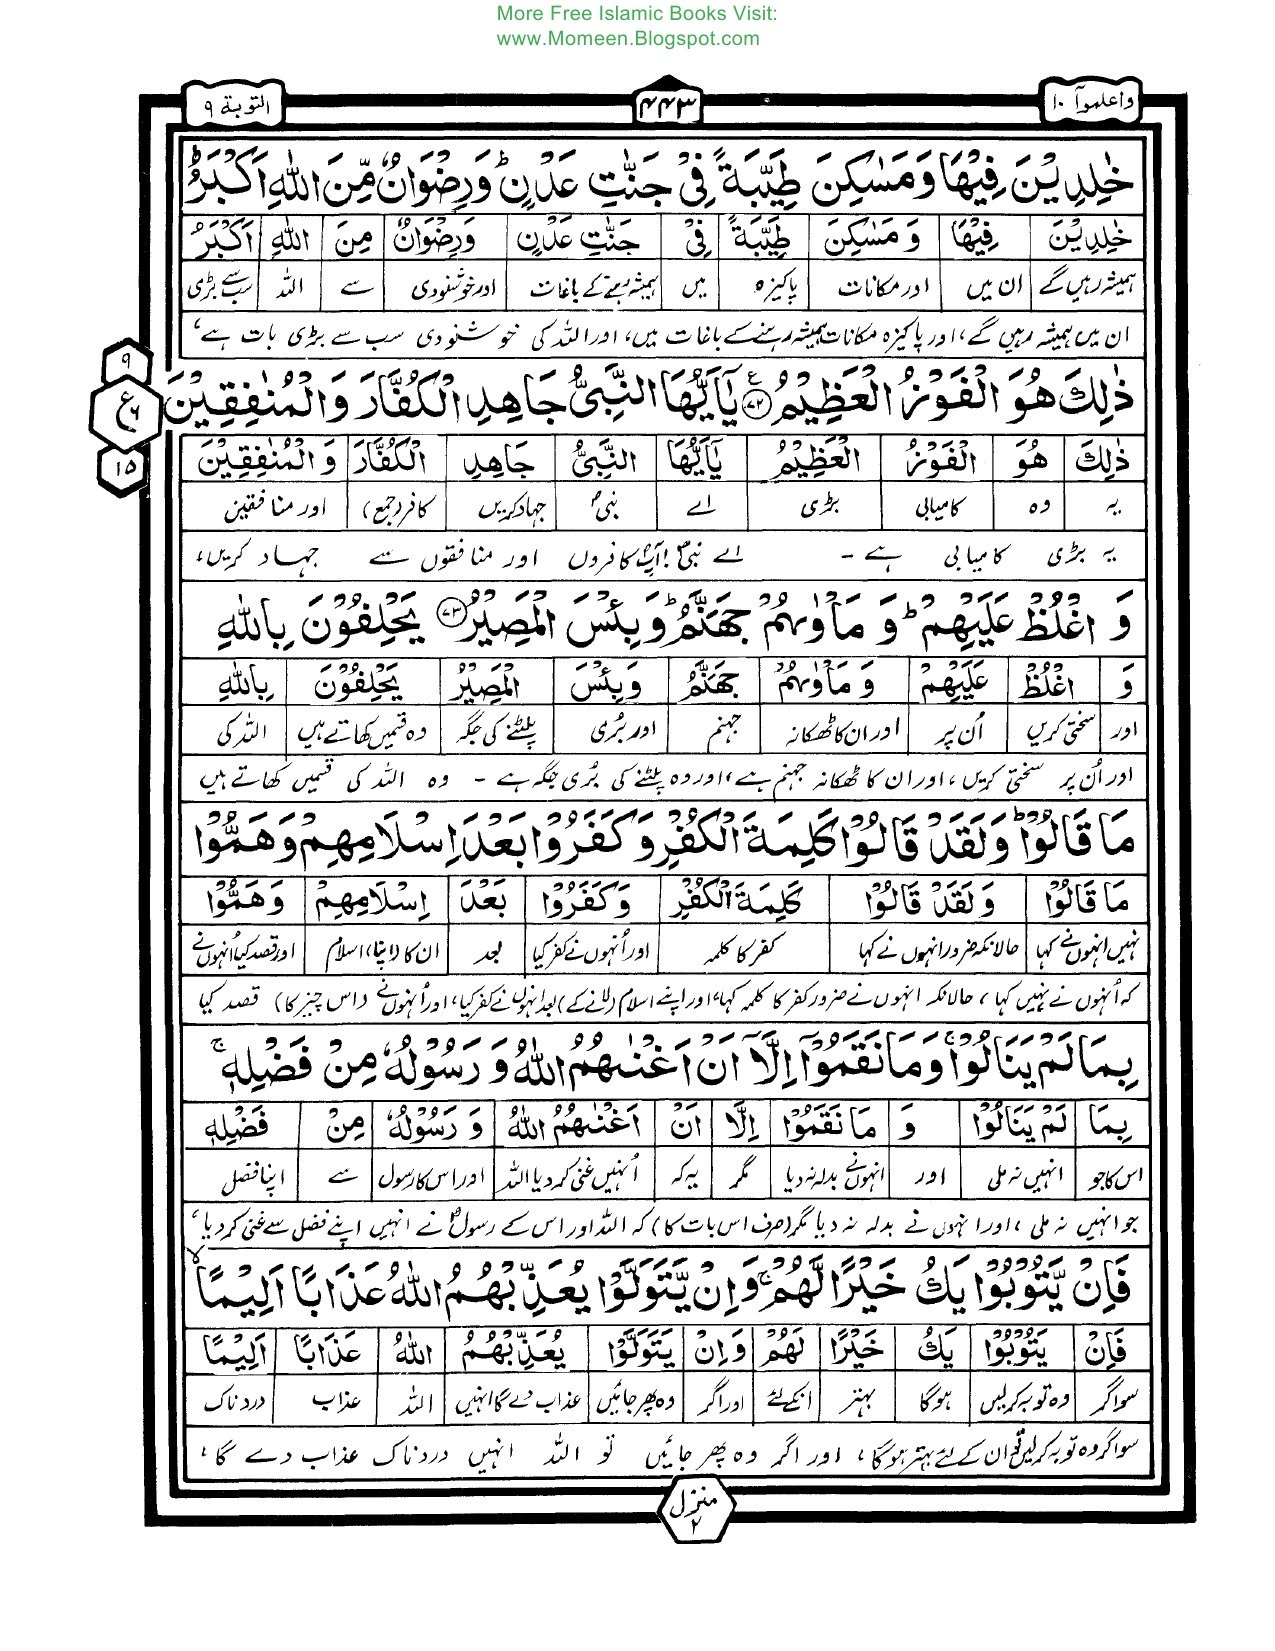 More Free Islamic Books Visit:
www.Momeen.Blogspot.com
واعلموآ ١٠
۴۴۳
التوبة ٩
خٰلِدِيْنَ فِيْهَا وَ مَسٰكِنَ طَيِّبَةً فِيْ جَنّٰتِ عَدْنٍ ؕ وَ رِضْوَانٌ مِّنَ اللّٰهِ اَكْبَرُ ؕ
خٰلِدِيْنَ فِيْهَا وَ مَسٰكِنَ طَيِّبَةً فِيْ جَنّٰتِ عَدْنٍ وَرِضْوَانٌ مِنَ اللّٰهِ اَكْبَرُ
ہمیشہ رہیں گے ان میں اور مکانات پاکیزہ میں ہمیشہ رہنے کے باغات اور خوشنودی سے اللہ سب سے بڑی
ان میں ہمیشہ رہیں گے، اور پاکیزہ مکانات ہمیشہ رہنے کے باغات میں، اور اللہ کی خوشنودی سب سے بڑی بات ہے،
ذٰلِكَ هُوَ الْفَوْزُ الْعَظِيْمُ ۧ ﴿٧٢﴾ يٰۤاَيُّهَا النَّبِيُّ جَاهِدِ الْكُفَّارَ وَ الْمُنٰفِقِيْنَ
٩
ع ٦
١٥
ذٰلِكَ هُوَ الْفَوْزُ الْعَظِيْمُ يٰۤاَيُّهَا النَّبِيُّ جَاهِدِ الْكُفَّارَ وَ الْمُنٰفِقِيْنَ
یہ وہ کامیابی بڑی اے نبیؐ جہاد کریں کافر (جمع) اور منافقین
یہ بڑی کامیابی ہے ۔ اے نبیؐ! آپؐ کافروں اور منافقوں سے جہاد کریں،
وَ اغْلُظْ عَلَيْهِمْ ؕ وَ مَاْوٰىهُمْ جَهَنَّمُ ؕ وَ بِئْسَ الْمَصِيْرُ ﴿٧٣﴾ يَحْلِفُوْنَ بِاللّٰهِ
وَ اغْلُظْ عَلَيْهِمْ وَ مَاْوٰىهُمْ جَهَنَّمُ وَ بِئْسَ الْمَصِيْرُ يَحْلِفُوْنَ بِاللّٰهِ
اور سختی کریں اُن پر اور ان کا ٹھکانہ جہنم اور بُری پلٹنے کی جگہ وہ قسمیں کھاتے ہیں اللہ کی
اور اُن پر سختی کریں، اور ان کا ٹھکانہ جہنم ہے، اور وہ پلٹنے کی بُری جگہ ہے ۔ وہ اللہ کی قسمیں کھاتے ہیں
مَا قَالُوْا ؕ وَ لَقَدْ قَالُوْا كَلِمَةَ الْكُفْرِ وَ كَفَرُوْا بَعْدَ اِسْلَامِهِمْ وَ هَمُّوْا
مَا قَالُوْا وَ لَقَدْ قَالُوْا كَلِمَةَ الْكُفْرِ وَ كَفَرُوْا بَعْدَ اِسْلَامِهِمْ وَ هَمُّوْا
نہیں انہوں نے کہا حالانکہ ضرور انہوں نے کہا کفر کا کلمہ اور اُنہوں نے کفر کیا بعد ان کا (اپنا) اسلام اور قصد کیا اُنہوں نے
کہ اُنہوں نے نہیں کہا، حالانکہ انہوں نے ضرور کفر کا کلمہ کہا، اور اپنے اسلام (لانے کے) بعد انہوں نے کفر کیا، اور اُنہوں نے (اس چیز کا) قصد کیا
بِمَا لَمْ يَنَالُوْا ۚ وَ مَا نَقَمُوْۤا اِلَّاۤ اَنْ اَغْنٰىهُمُ اللّٰهُ وَ رَسُوْلُهٗ مِنْ فَضْلِهٖ ۚ
بِمَا لَمْ يَنَالُوْا وَ مَا نَقَمُوْا اِلَّا اَنْ اَغْنٰىهُمُ اللّٰهُ وَ رَسُوْلُهٗ مِنْ فَضْلِهٖ
اس کا جو انہیں نہ ملی اور انہوں نے بدلہ نہ دیا مگر یہ کہ اُنہیں غنی کر دیا اللہ اور اس کا رسول سے اپنا فضل
جو انہیں نہ ملی، اور انہوں نے بدلہ نہ دیا مگر (صرف اس بات کا) کہ اللہ اور اس کے رسولؐ نے انہیں اپنے فضل سے غنی کر دیا،
فَاِنْ يَّتُوْبُوْا يَكُ خَيْرًا لَّهُمْ ۚ وَ اِنْ يَّتَوَلَّوْا يُعَذِّبْهُمُ اللّٰهُ عَذَابًا اَلِيْمًا ۙ
فَاِنْ يَتُوْبُوْا يَكُ خَيْرًا لَهُمْ وَ اِنْ يَتَوَلَّوْا يُعَذِّبْهُمُ اللّٰهُ عَذَابًا اَلِيْمًا
سو اگر وہ توبہ کر لیں ہوگا بہتر انکے لئے اور اگر وہ پھر جائیں عذاب دے گا انہیں اللہ عذاب دردناک
سو اگر وہ توبہ کر لیں تو ان کے لئے بہتر ہوگا، اور اگر وہ پھر جائیں تو اللہ انہیں دردناک عذاب دے گا،
منزل ٢